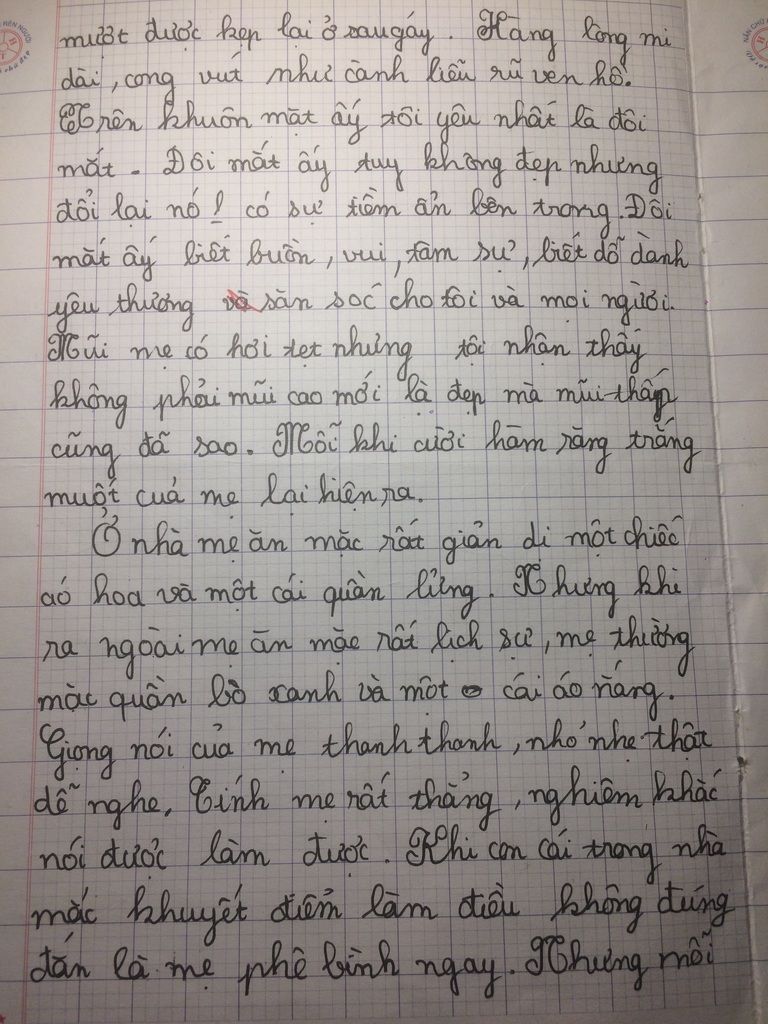 mượt được kẹp lại ở sau gáy. Hàng lông mi
dài, cong vút như cành liễu rũ ven hồ.
Trên khuôn mặt ấy tôi yêu nhất là đôi
mắt. Đôi mắt ấy tuy không đẹp nhưng
đổi lại nó ! có sự tiềm ẩn bên trong. Đôi
mắt ấy biết buồn, vui, tâm sự, biết dỗ dành
yêu thương và săn soc cho tôi và mọi người.
Mũi mẹ có hơi tẹt nhưng tôi nhận thấy
không phải mũi cao mới là đẹp mà mũi thấp
cũng đã sao. Mỗi khi cười hàm răng trắng
muốt của mẹ lại hiện ra.
Ở nhà mẹ ăn mặc rất giản di một chiếc
aó hoa và một cái quần lửng. Nhưng khi
ra ngoài mẹ ăn mặc rất lịch sự, mẹ thường
mặc quần bò xanh và một cái áo nắng.
Giọng nói của mẹ thanh thanh, nhỏ nhẹ thật
dễ nghe, Tính mẹ rất thẳng, nghiêm khắc
nói được làm được. Khi con cái trong nhà
mắc khuyết điểm làm điều không đúng
đắn là mẹ phê bình ngay. Nhưng mỗi